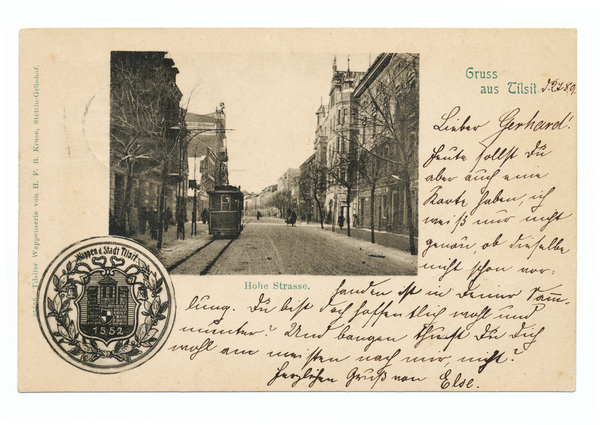 Gruss
aus Tilsit.
Lieber Gerhard!
Heute sollst Du
aber auch eine
Karte haben, ich
weiß nur nicht
genau, ob dieselbe
nicht schon vor-
handen ist in Deiner Samm-
lung. Du bist doch hoffentlich wohl und
munter? Und bangen thust Du Dich
wohl am meisten nach mir, nicht?
Herzlichen Gruß von Else.
Hohe Strasse.
Wappen d. Stadt Tilsit.
1552
Tilsiter Wappenserie von H. F. R. Kruse, Stettin-Grünhof.